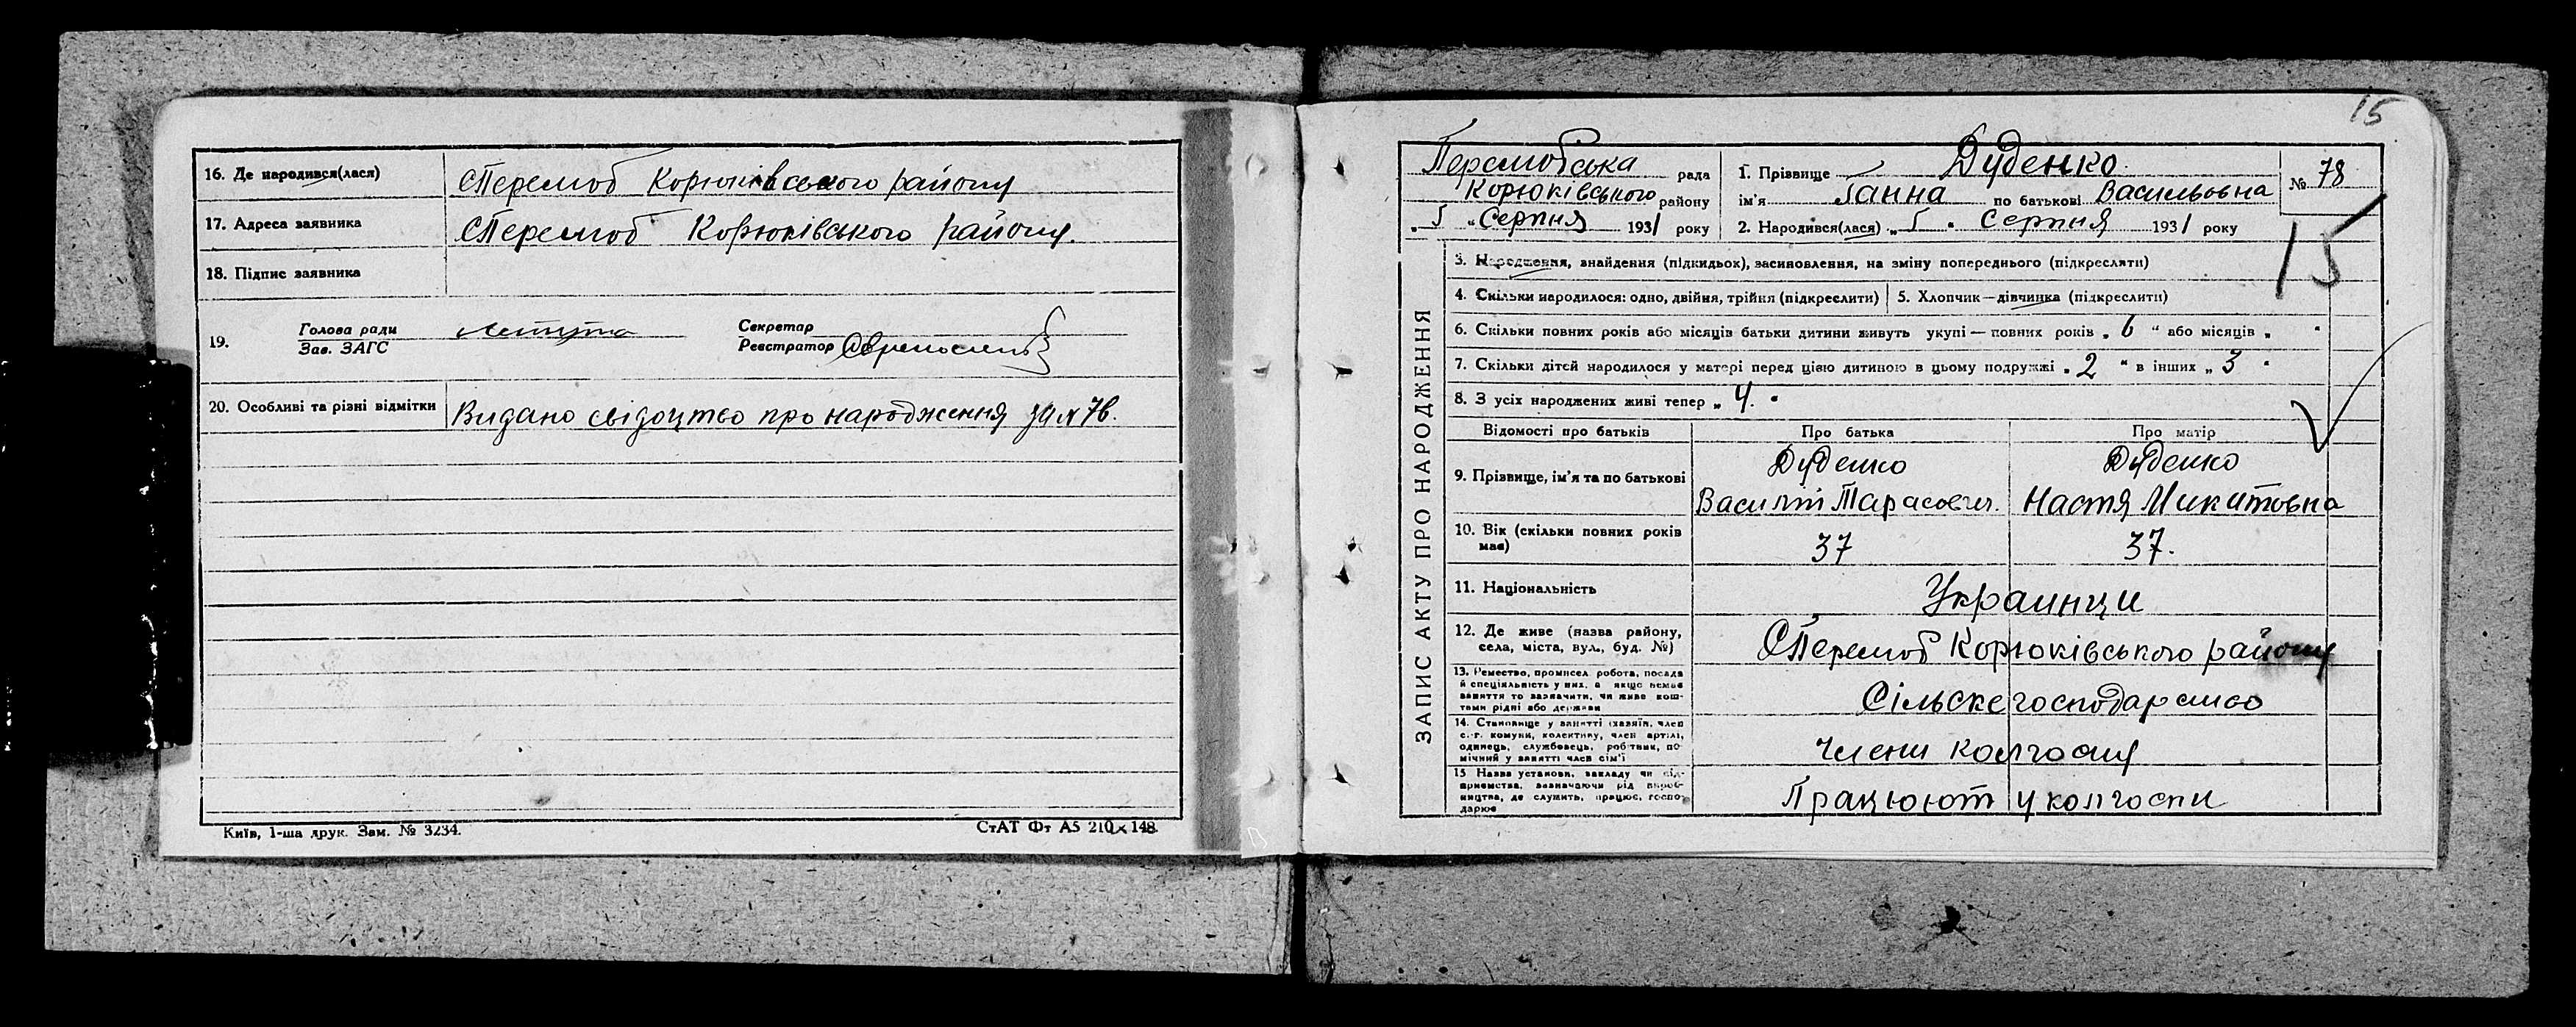 16. Де народився(лася) С Перемоб Корюківського району
17. Адреса заявника С Перемоб Корюківського району.
18. Підпис заявника
19. Голова ради
Зав. ЗАГС
Секретар
Реєстратор
20. Особливі та різні відмітки Видано свідоцтво про народження за №
Київ, 1-ша друк. Зам. № 3234.
СтАТ Фт А5 210×148
15
Перемобська рада
Корюківського району
„ 5 " Серпня 1931 року
1. Прізвище Дуденко
ім'я Ганна по батькові Васильовна
2. Народився(лася) „ 5 " Серпня 1931 року
№ 78
15
ЗАПИС АКТУ ПРО НАРОДЖЕННЯ
3. Народження, знайдення (підкидьох), засиновлення, на зміну попереднього (підкреслити)
4. Скільки народилося: одно, двійня, трійня (підкреслити)
5. Хлопчик—дівчинка (підкреслити)
6. Скільки повних років або місяців батьки дитини живуть укупі — повних років „ 6 " або місяців „ "
7. Скільки дітей народилося у матері перед цією дитиною в цьому подружжі „ 2 " в інших „ 3 "
8. З усіх народжених живі тепер „ 4. "
Відомості про батьків Про батька Про матір
9. Прізвище, ім'я та по батькові
Дуденко
Василій Тарасович.
Дуденко
Настя Микитовна
10. Вік (скільки повних років має) 37 37.
11. Національність Украинци
12. Де живе (назва району,
села, міста, вул., буд. №)
С Перемоб Корюківського району
13. Ремество, промисел, робота, посада
й спеціяльність у них, а якщо немає
заняття то зазначити, чи живе кош-
тами рідні або держави
Сільске господарство
14. Становище у занятті (хазяїн, член
с.-г. комуни, колективу, член артілі,
одинець, службовець, робітник, по-
мічний у занятті член сім'ї
Члени колгоспу
15 Назва установи, закладу чи під-
приємства, зазначаючи рід вироб-
ництва, де служить, працює, госпо-
дарює
Працюют у колгоспи